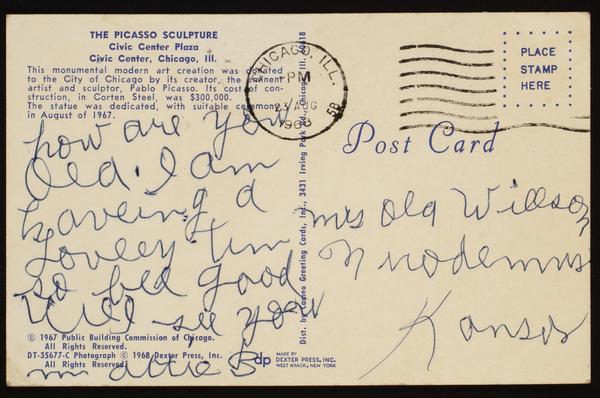 THE PICASSO SCULPTURE
Civic Center Plaza
Civic Center, Chicago, Ill.
This monumental modern art creation was donated
to the City of Chicago by its creator, the eminent
artist and sculptor, Pablo Picasso. Its cost of con-
struction, in Corten Steel, was $300,000.
The statue was dedicated, with suitable ceremony
in August of 1967.
how are you
Ola. I am
haveing a
Lovely tim
so bed good
Will see you
mr attie B
© 1967 Public Building Commission of Chicago.
All Rights Reserved.
DT-35677-C Photograph © 1968 Dexter Press, Inc.
All Rights Reserved
dp
MADE BY
DEXTER PRESS, INC.
WEST NYACK, NEW YORK
Dist. by Cameo Greeting Cards, Inc., 3431 Irving Park Rd., Chicago, Ill. 60618
CHICAGO, ILL.
PM
23 AUG
1968
5B
PLACE
STAMP
HERE
Post Card
mrs Ola Willson
Nicodemus
Kansas